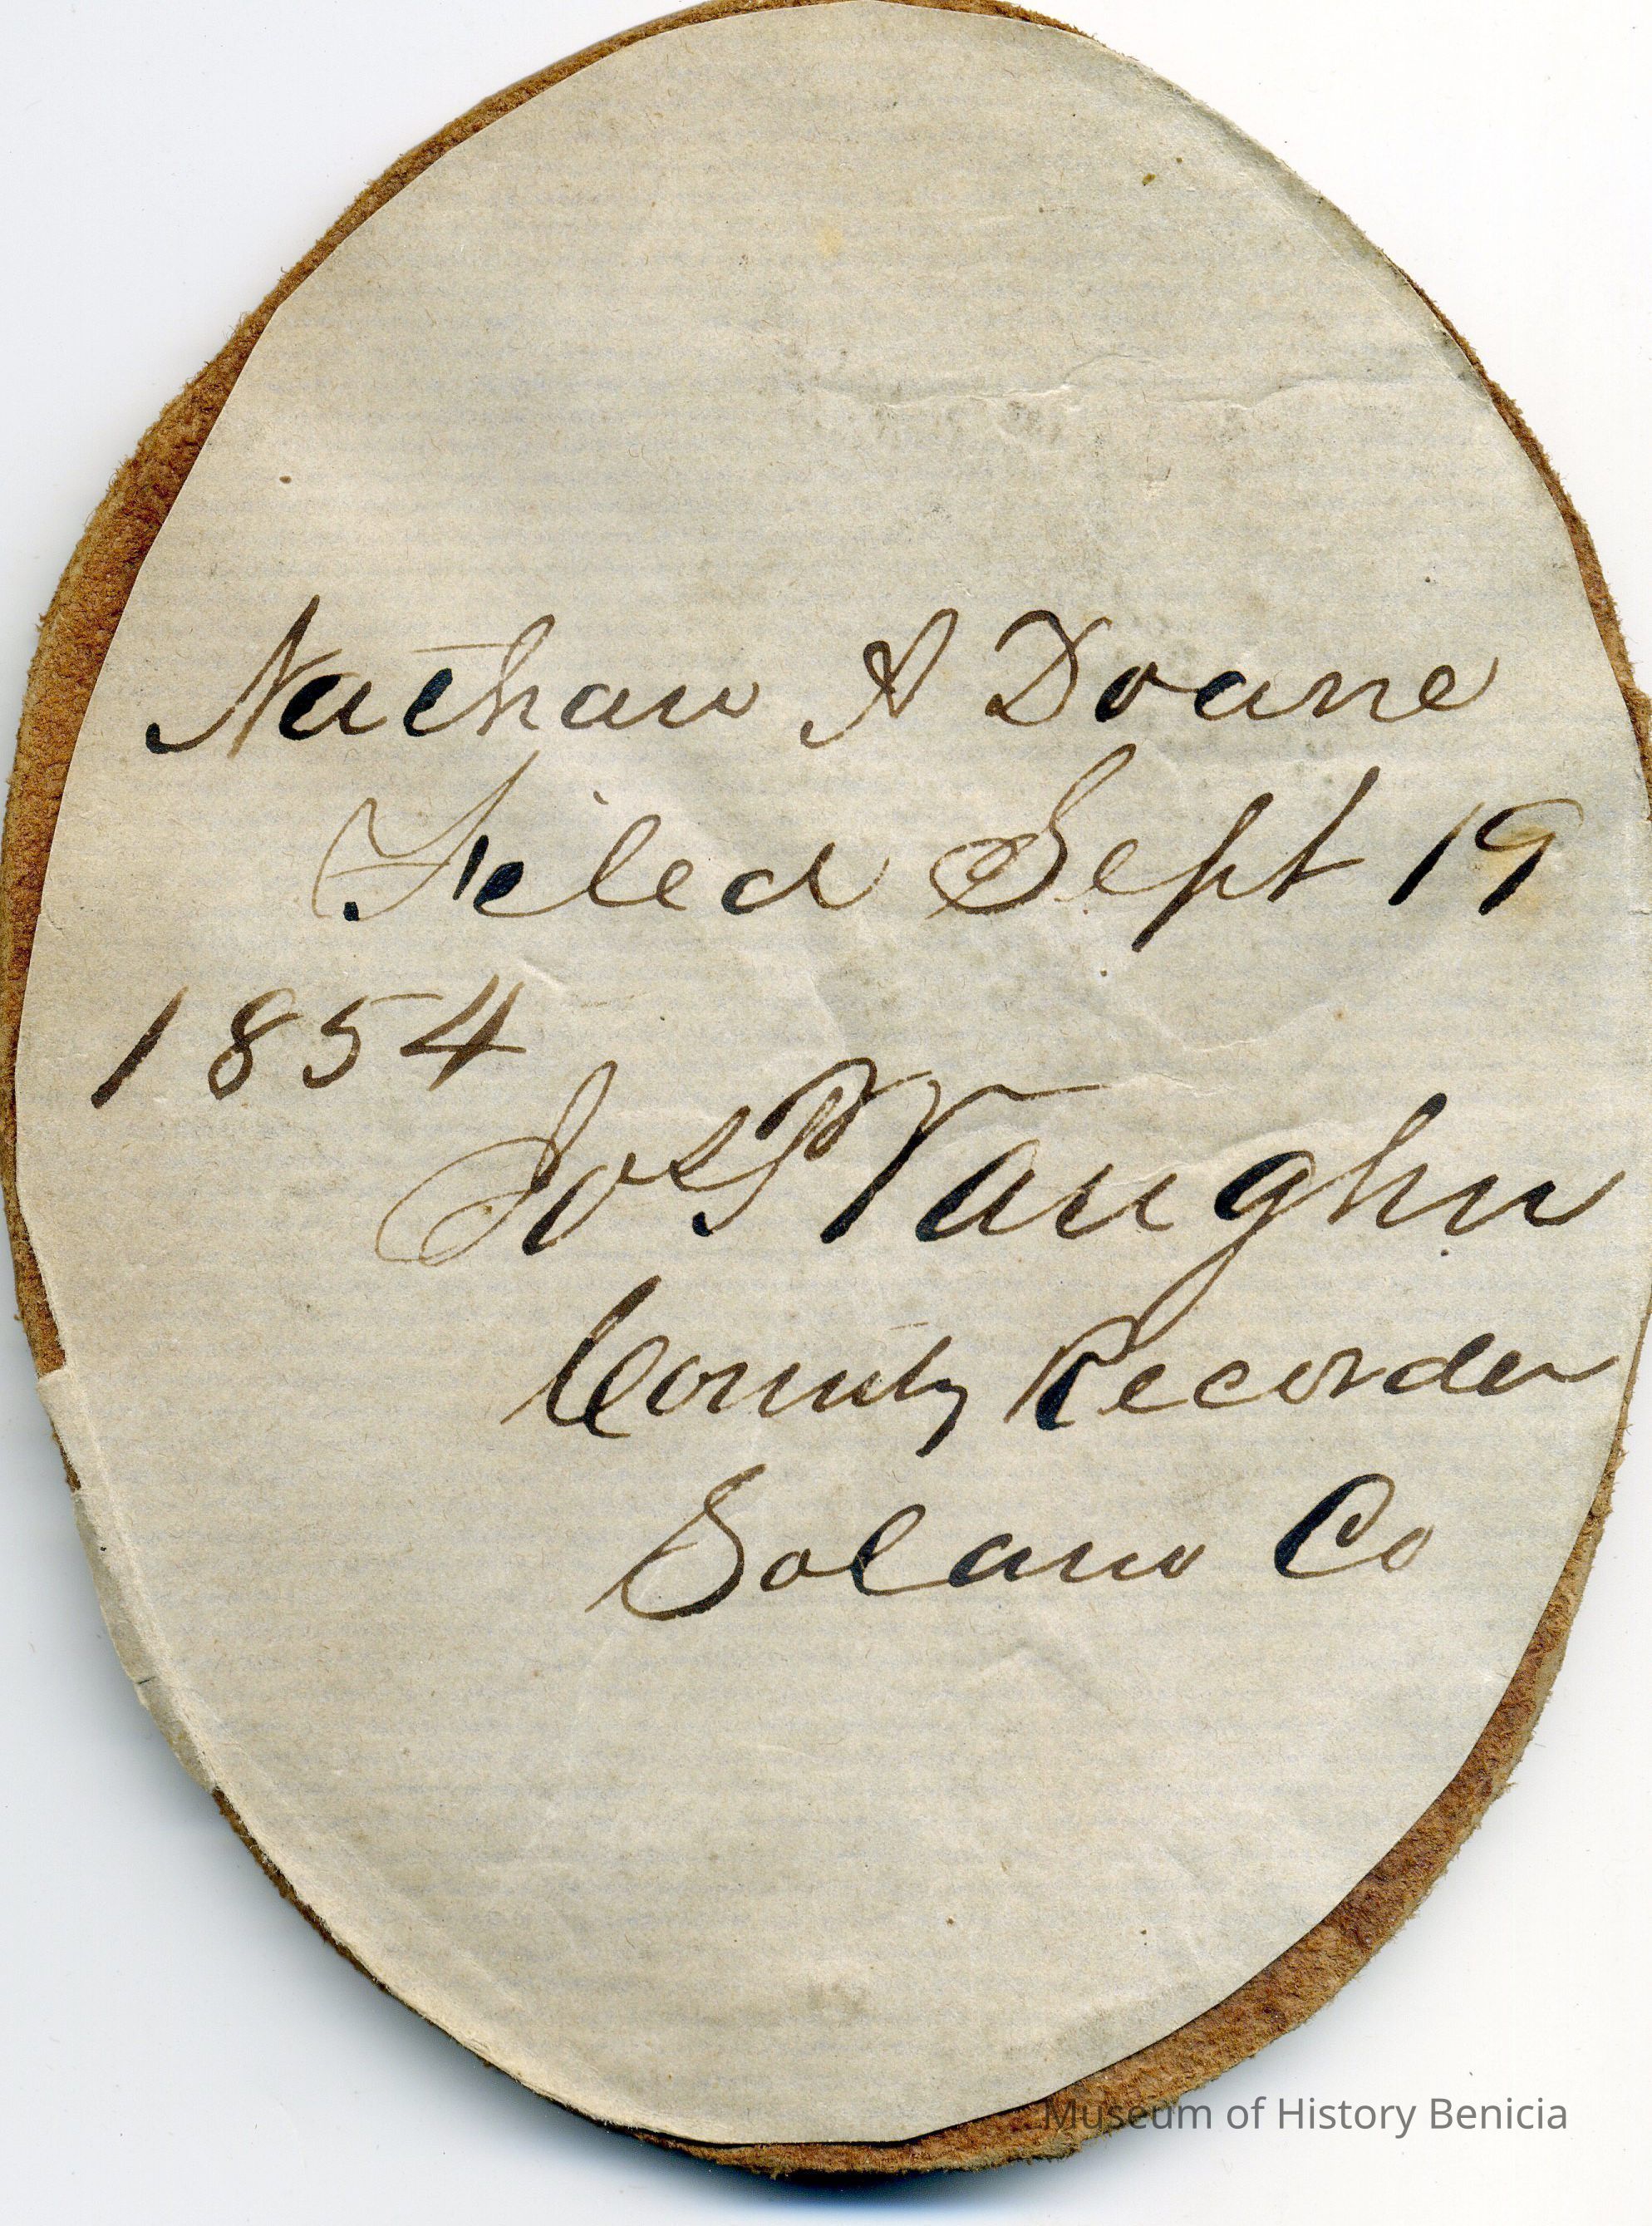 Nathan A Doane
Filed Sept 19
1854
Jos P Vaughn
County Recorder
Solano Co
Museum of History Benicia